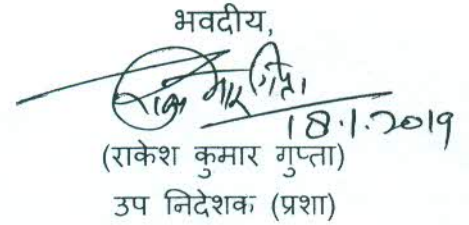 भवदीय,
18.1.2019
(राकेश कुमार गुप्ता)
उप निदेशक (प्रशा)